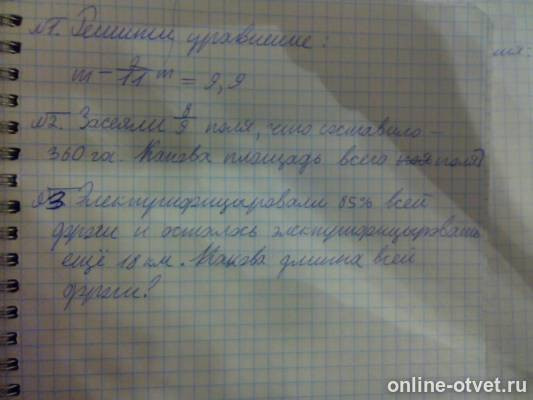 №1. Решити уравнение:
m - 2/11 m = 9,9
№2. Засеяли 8/9 поля, что составило -
360 га. Какова площадь всего поля?
№3 Электрифицировали 85% всей
дороги и осталось электрифицировать
ещё 18 км. Какова длинна всей
дороги?
ия:
online-otvet.ru